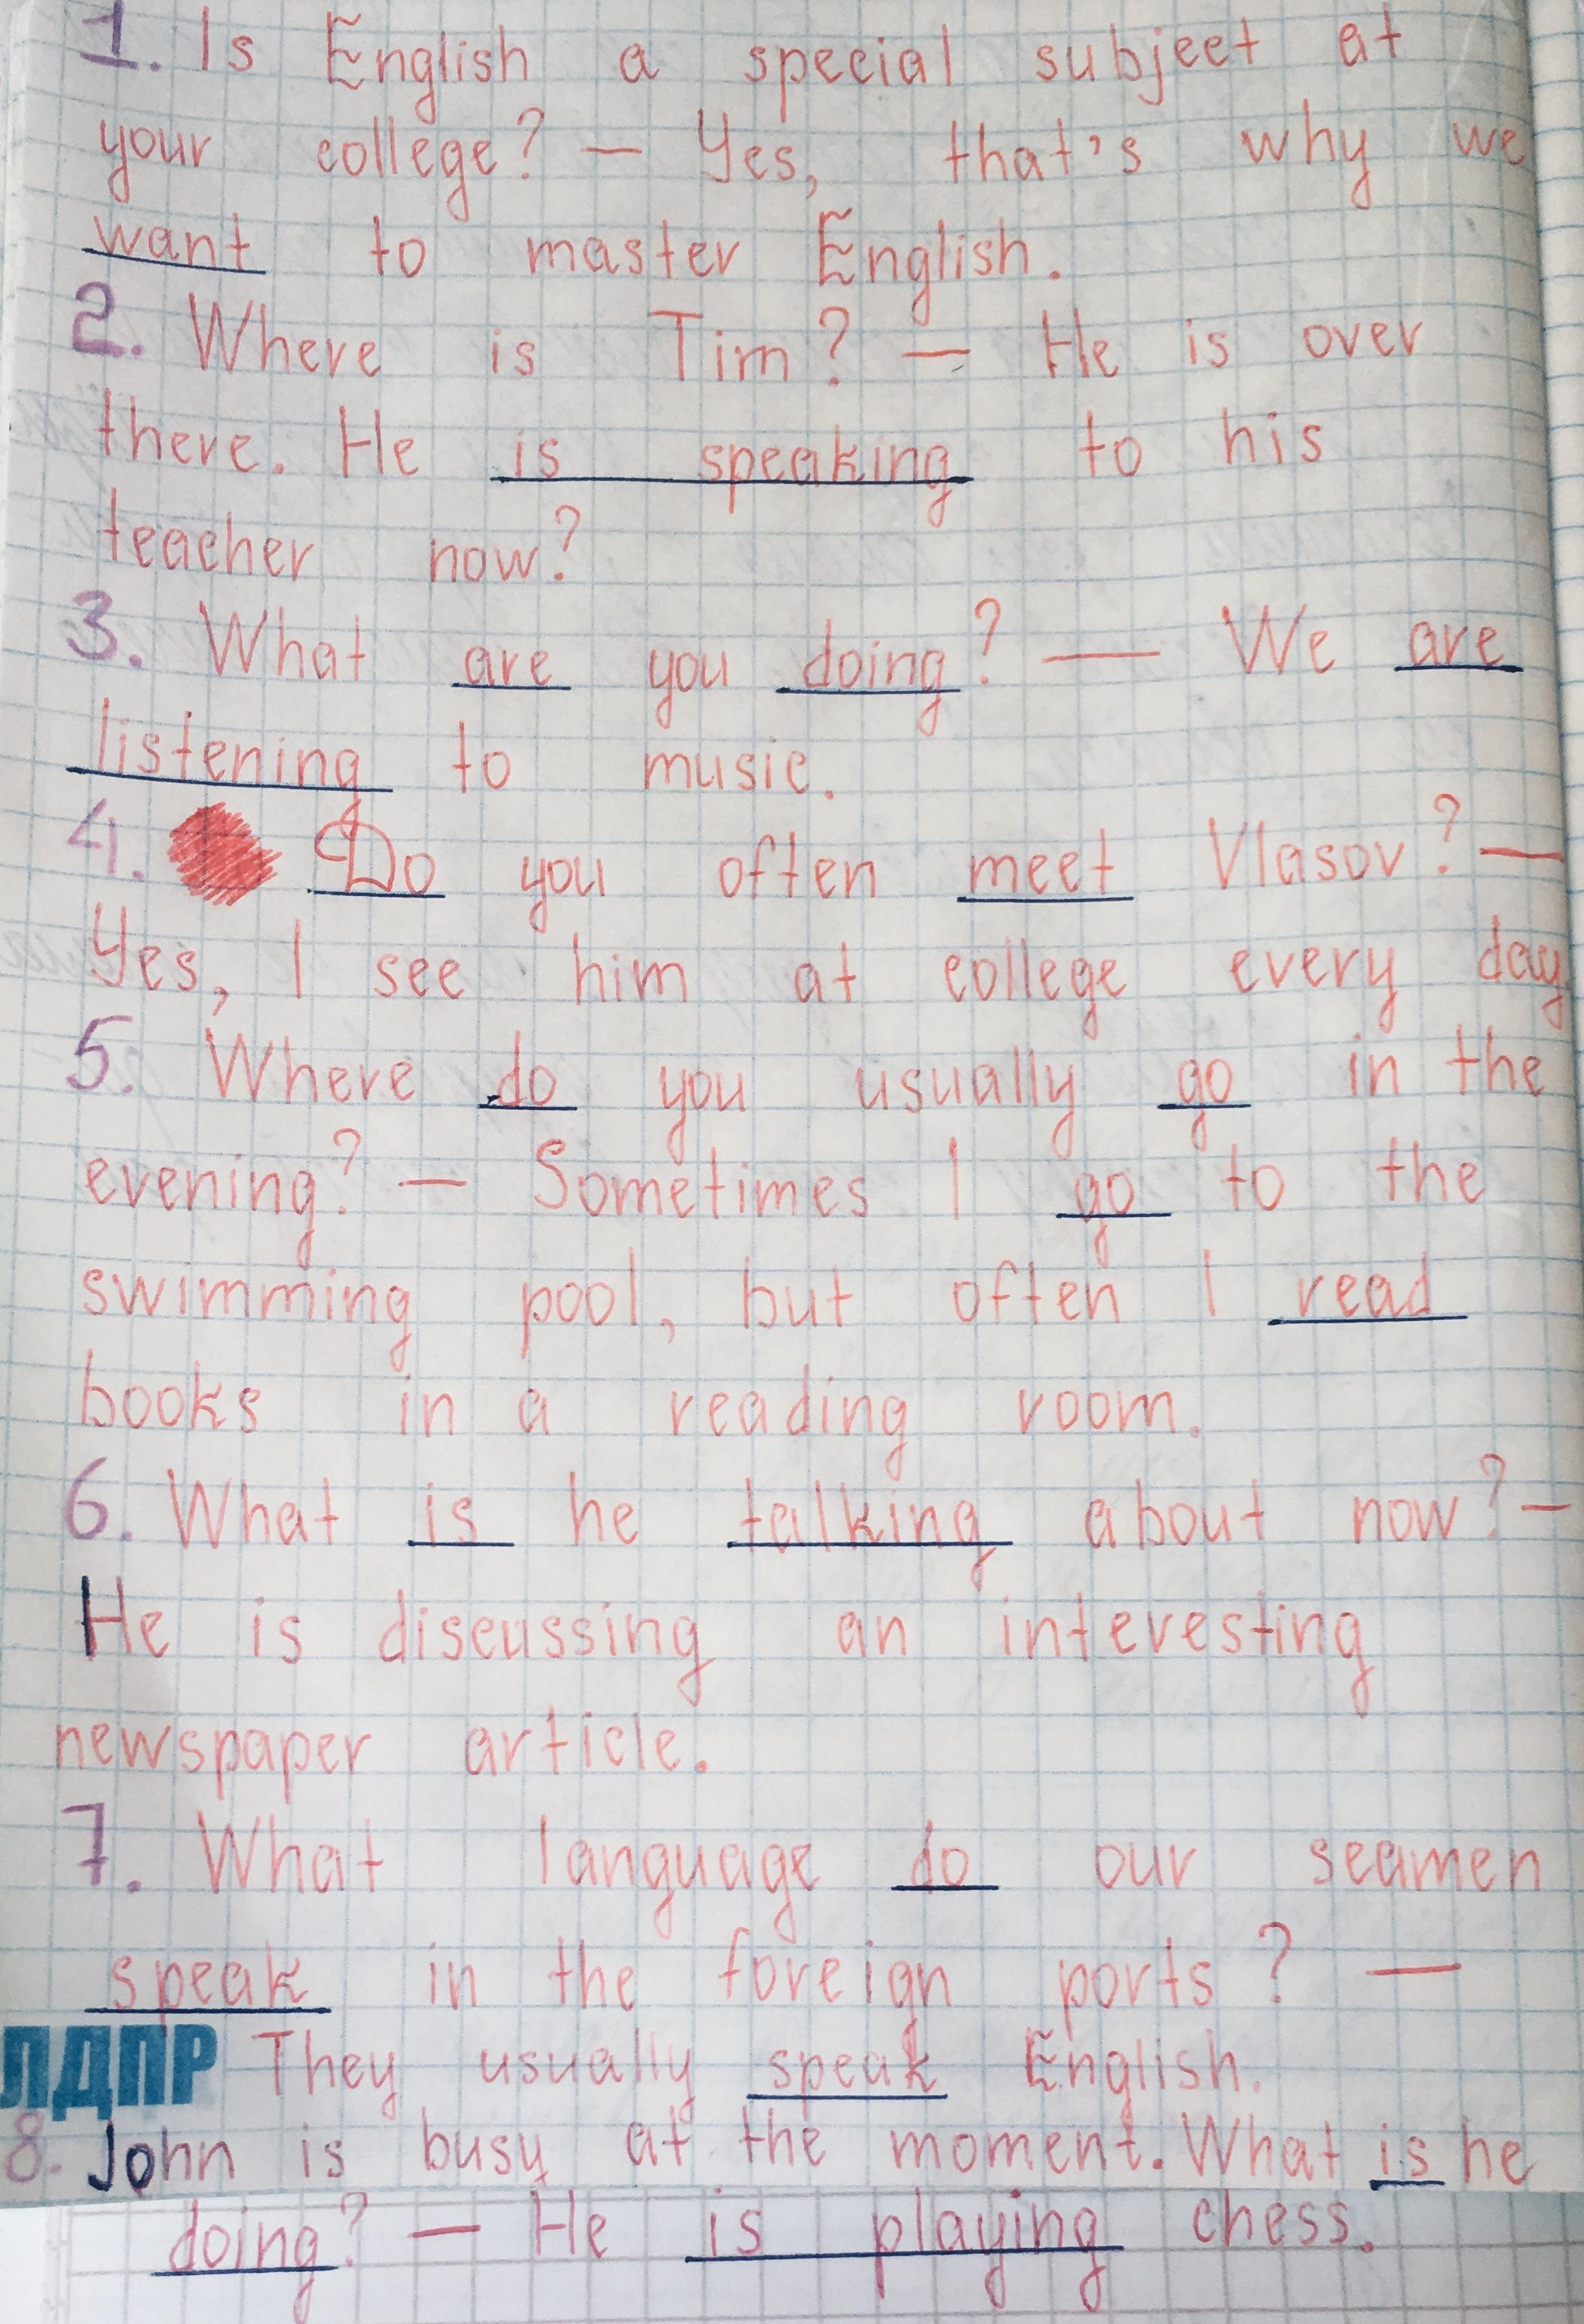 1. Is English a special subject at
your college? — Yes, that's why we
want to master English.
2. Where is Tim? — He is over
there. He is speaking to his
teacher now?
3. What are you doing? — We are
listening to music.
4. Do you often meet Vlasov? —
Yes, I see him at college every day
5. Where do you usually go in the
evening? — Sometimes I go to the
swimming pool, but often I read
books in a reading room.
6. What is he talking about now? —
He is discussing an interesting
newspaper article.
7. What language do our seamen
speak in the foreign ports? —
ЛДПР They usually speak English.
8. John is busy at the moment. What is he
doing? — He is playing chess.